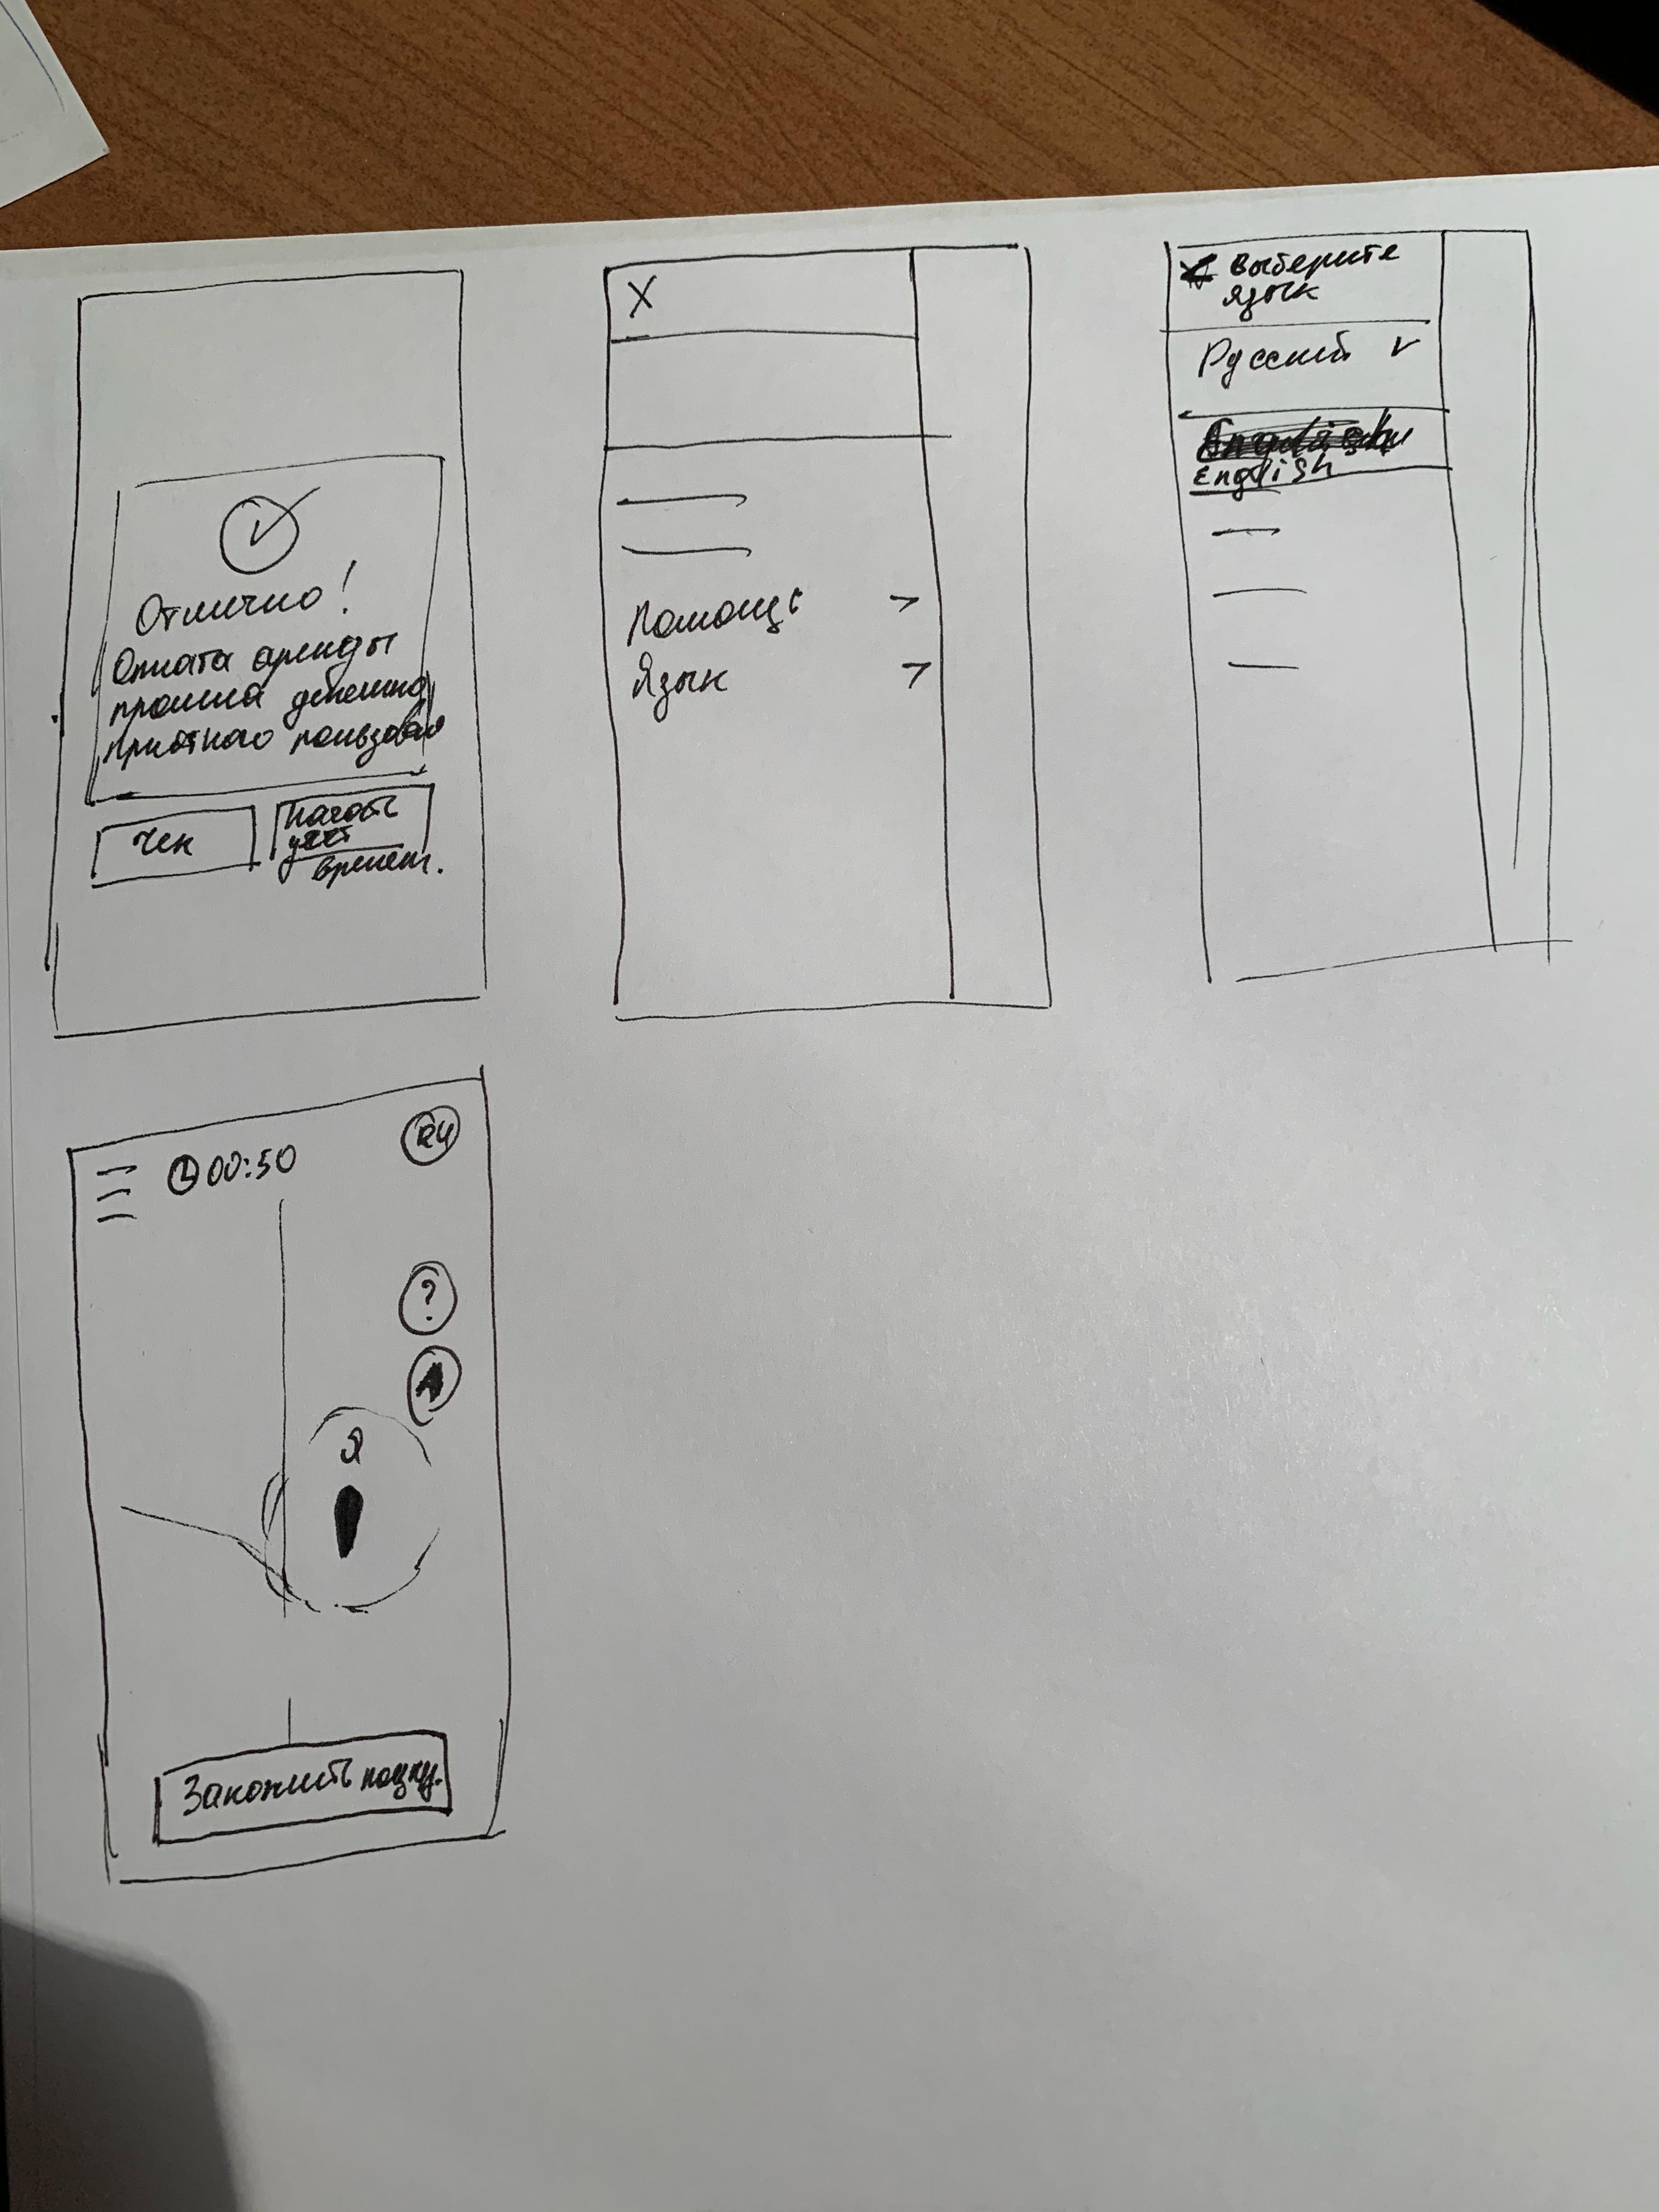 Отлично!
Оплата аренды
прошла успешно
приятного пользован
Чек
Начать
учёт
времен.
X
Помощь >
Язык >
Выберите
язык
Русский v
English
00:50
RU
?
Я
Закончить